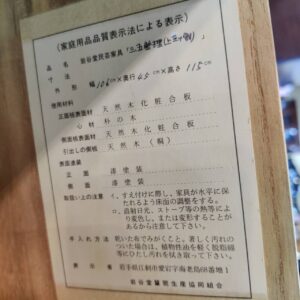 (家庭用品品質表示法による表示)
品 名 岩谷堂民芸家具「三五整理(上三ツ割)」
寸 法
外 形 幅106cm×奥行45cm×高さ115cm
使用材料
正面板表面材 天然木化粧合板
心 材 朴の木
側面板表面材 天然木化粧合板
引出しの側板 天然木(桐)
表面塗装
正 面 漆塗装
側 面 漆塗装
取扱い上の注意 イ、すえ付けに際し、家具が水平に保
たれるよう床面の調整をする。
ロ、直射日光、ストーブ等の熱等により
変色し、または変形することがある
から注意して下さい。
手入れ方法 乾いた布でみがくこと。著しく汚れの
ついた場合は、植物性油を軽く脱脂綿
等にひたし汚れを拭き取って下さい。
表 示 者 岩手県江刺市愛宕字海老島68番地1
岩谷堂簞笥生産協同組合